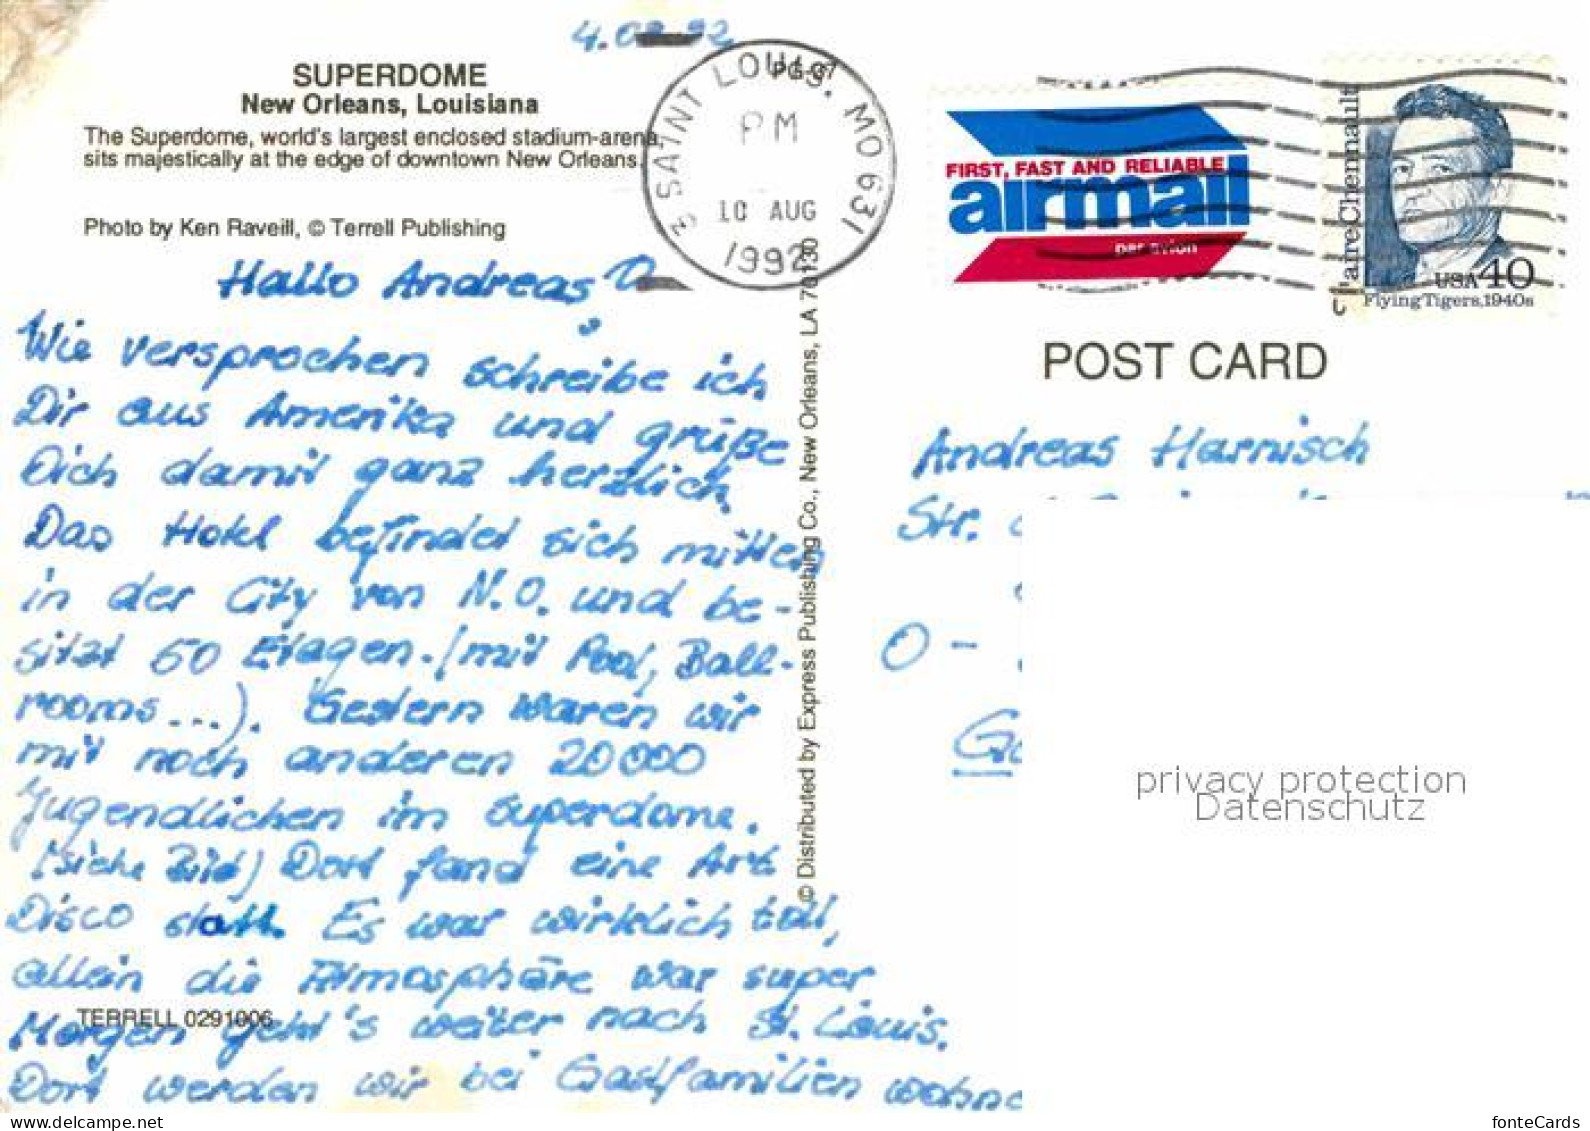 4.08.92
SUPERDOME
New Orleans, Louisiana
The Superdome, world's largest enclosed stadium-arena,
sits majestically at the edge of downtown New Orleans.
Photo by Ken Raveill, © Terrell Publishing
SAINT LOUIS, MO 631
PM
10 AUG
1992
FIRST, FAST AND RELIABLE
airmail
par avion
Claire Chennault
USA 40
Flying Tigers, 1940s
POST CARD
Hallo Andreas
Wie versprochen schreibe ich
Dir aus Amerika und grüße
Dich damit ganz herzlich.
Das Hotel befindet sich mitten
in der City von N.O. und be-
sitzt 50 Etagen. (mit Pool, Ball-
rooms...). Gestern waren wir
mit noch anderen 20000
Jugendlichen im Superdome.
(siehe Bild) Dort fand eine Art
Disco statt. Es war wirklich toll,
allein die Atmosphäre war super
Morgen geht's weiter nach St. Louis.
Dort werden wir bei Gastfamilien wohne
TERRELL 0291006
© Distributed by Express Publishing Co., New Orleans, LA 70130
Andreas Harnisch
Str.
O -
privacy protection
Datenschutz
www.delcampe.net
fonteCards